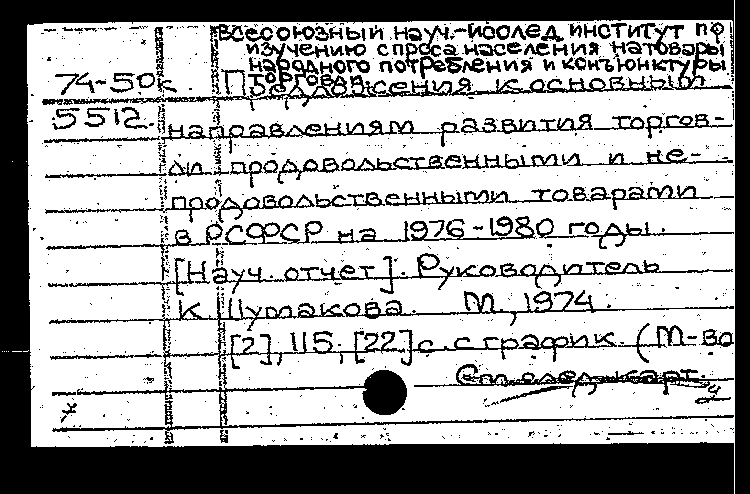 Всесоюзный науч.-исслед институт по
изучению спроса населения на товары
народного потребления и конъюнктуры
торговли
74-50к. Предложения к основным
5512. направлениям развития торгов-
ли продовольственными и не-
продовольственными товарами
в РСФСР на 1976-1980 годы.
[Науч. отчет]. Руководитель
К. Шумакова. М., 1974.
[2], 115, [22] с. с график. (М-во
См. след. карт.